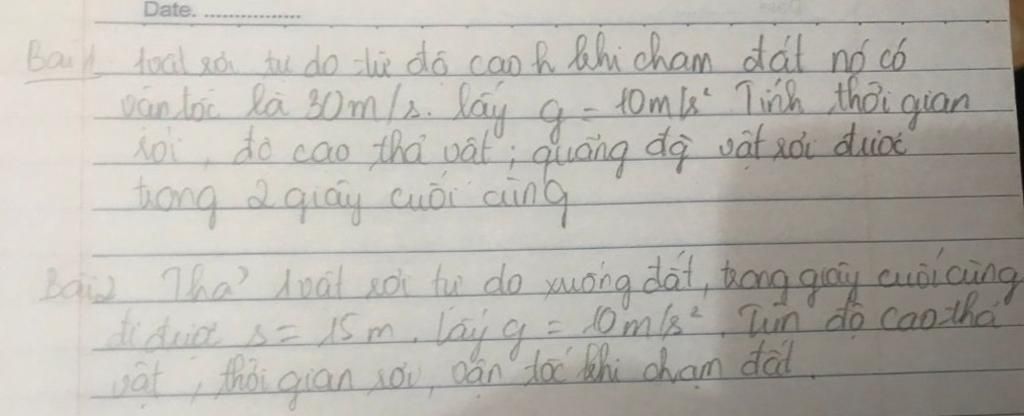 Date.
Bài 1 1 vật rơi tự do từ độ cao h khi chạm đất nó có
vận tốc là 30m/s. lấy g = 10m/s² Tính thời gian
rơi, độ cao thả vật; quãng đg vật rơi được
trong 2 giây cuối cùng
Bài 2 Thả 1 vật rơi tự do xuống đất, trong giây cuối cùng
đi được s = 15m. lấy g = 10m/s². Tính độ cao thả
vật, thời gian rơi, vận tốc khi chạm đất.